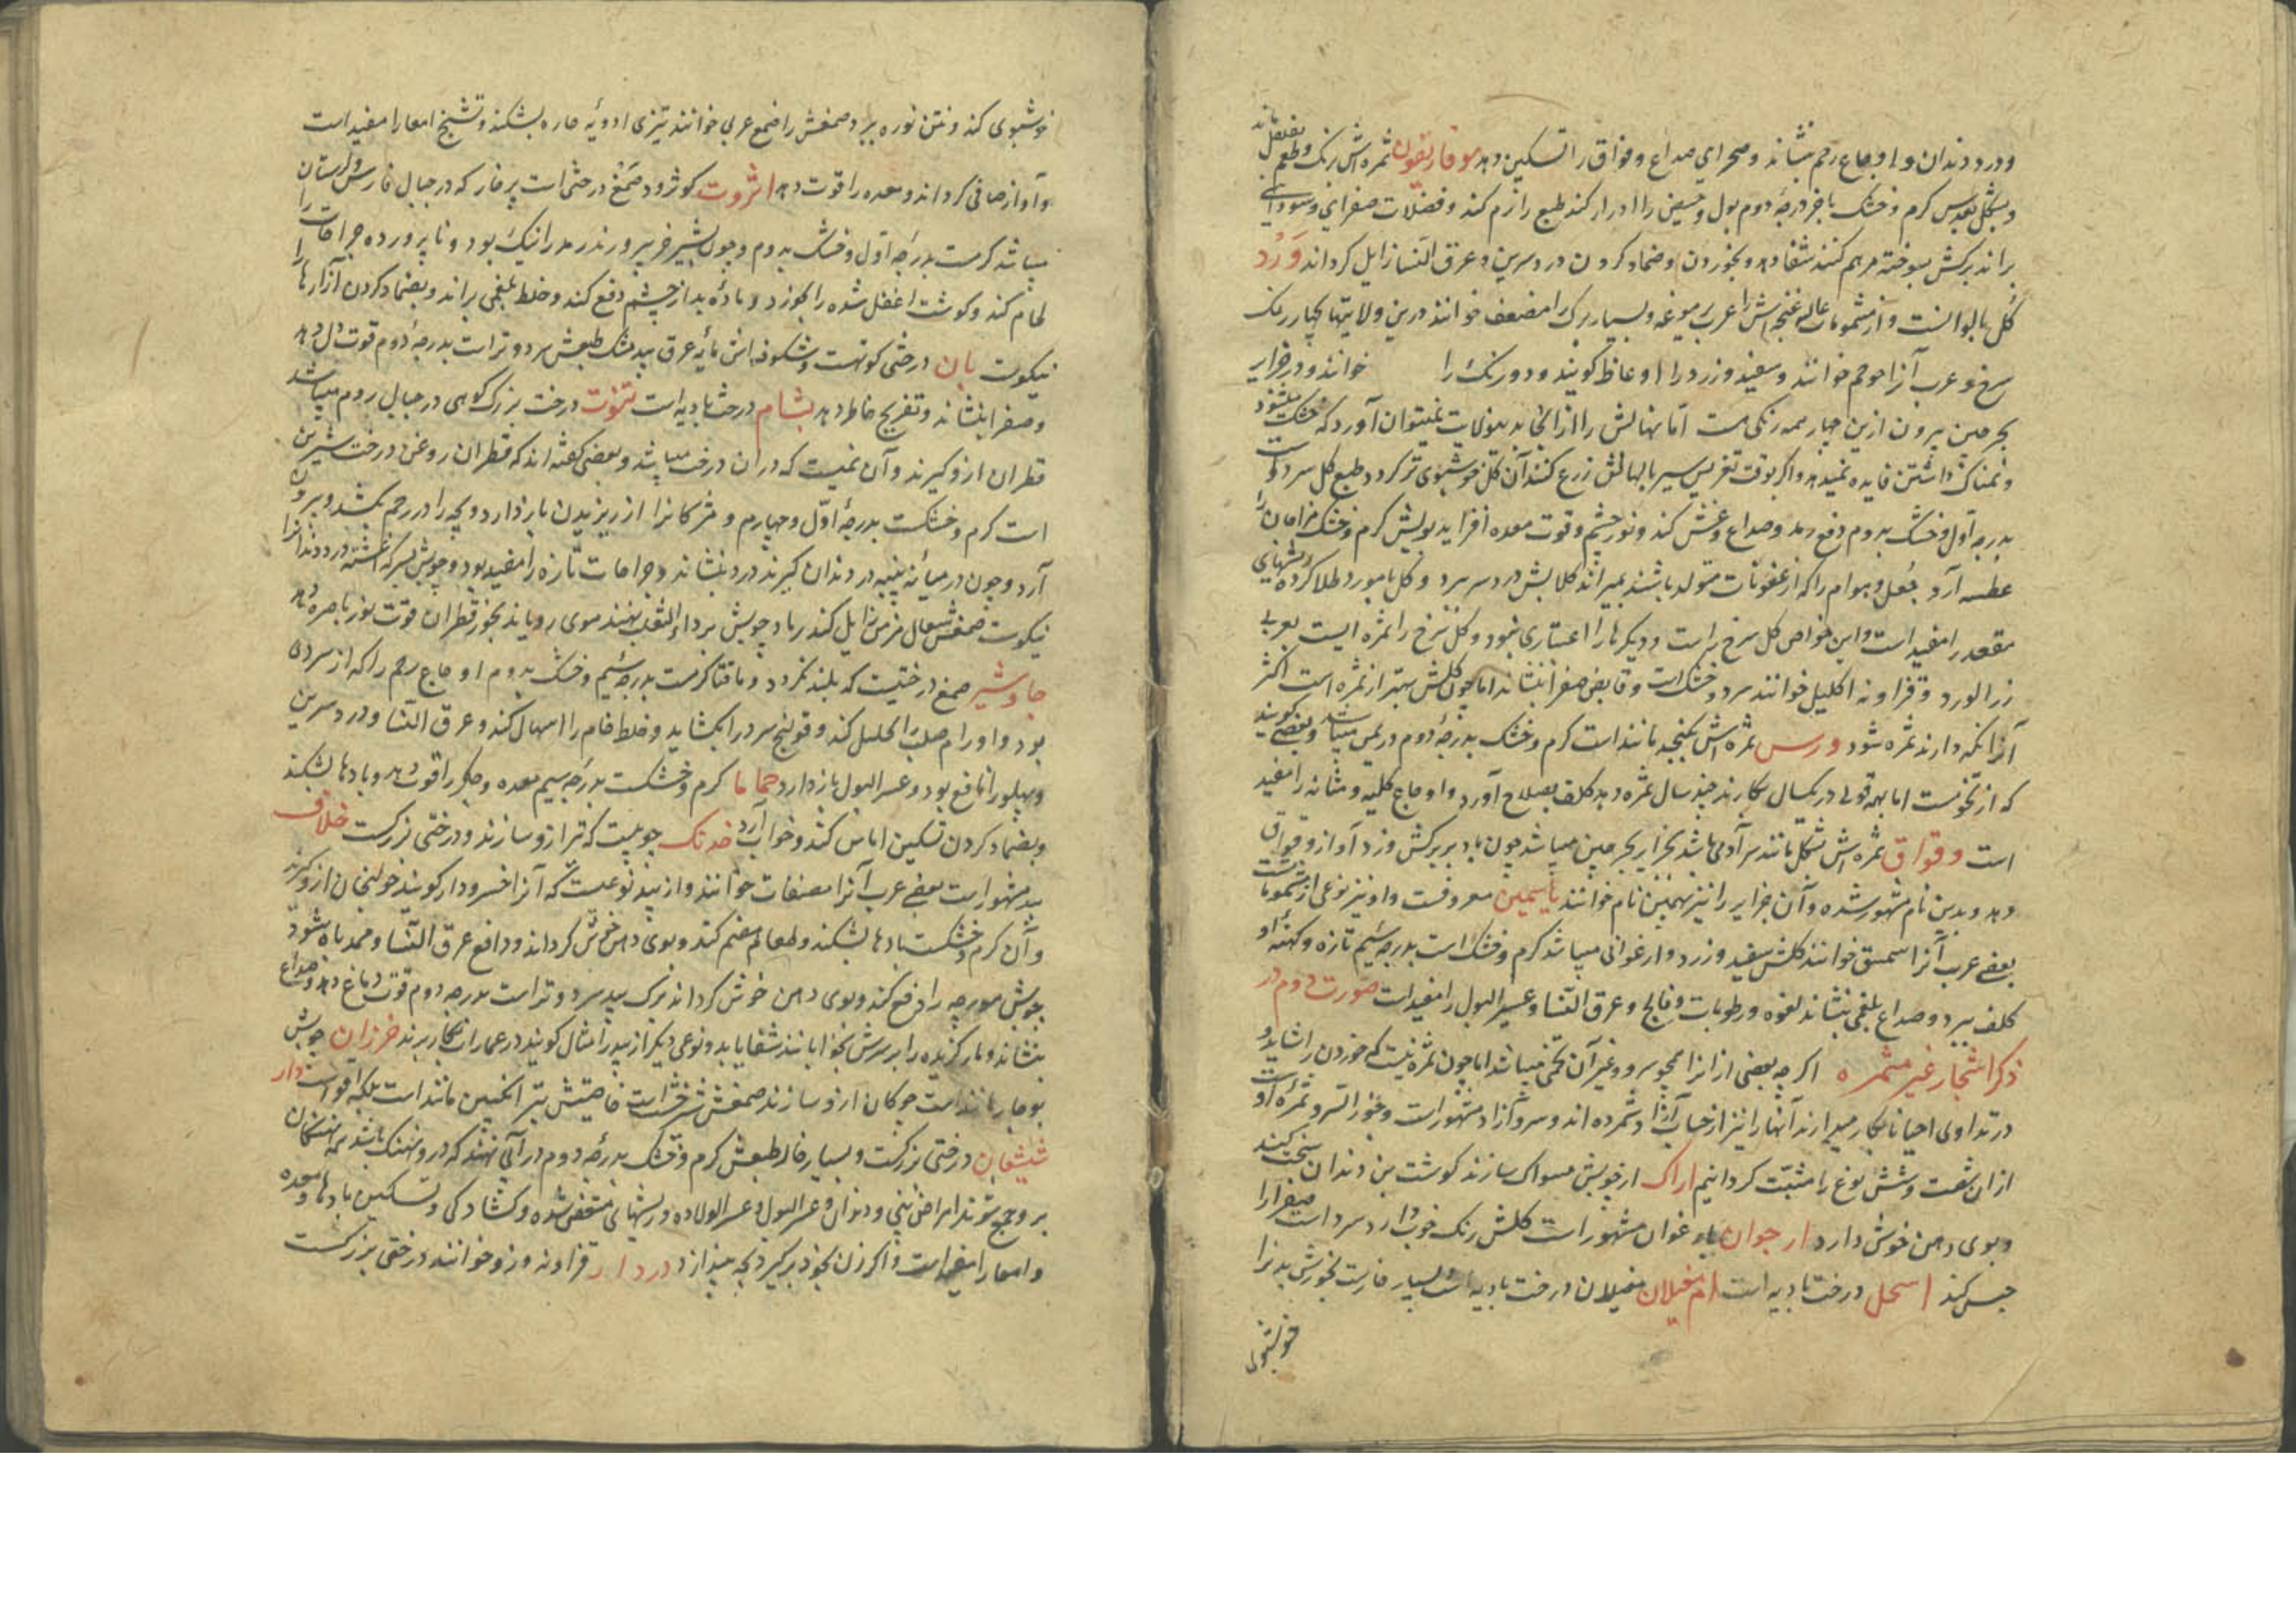 ودرد دندان و اوجاع رحم بنشاند و صداع و فواق را تسکین دهد موفاریقون ثمره‌اش برنک و طعم بفلفل ماند
و بشکل بعدس کرم و خشک باخر درجهٔ دوم بول و حیض را ادرار کند طبع را نرم کند و فضلات صفرایی و سودایی
براند برکش سوخته مرهم کنند شفا دهد و بخوردن و ضماد کردن درد سرین و عرق النسا زایل کرداند وَرْد
کل بالوانست و از مشمومات عالی غنچه‌اش را عرب و بسیار برک را مضعف خوانند درین ولایتها بچهار رنک
سرخ و عرب آنرا حوجم خوانند و سفید و زرد را کویند و دو رنک را خوانند و در جزایر
بحر چین بیرون ازین چهار همه رنکی هست اما نهالش را از انجا بدینولایت نمیتوان آورد که خشک میشود
و نمناک داشتن فایده نمیدهد و اکر بوقت تغریس سیر با نهالش زرع کنند آن کل خوشبوی تر کردد طبع کل سرد است
بدرجه اول و خشک بدوم دفع رمد و صداع و غش کند و نور چشم و قوت معده افزاید بویش کرم و خشک مزاجان را
عطسه آرد جُعل و هوام را که از عفونات متولد باشند بمیراند کلابش درد سر برد و کل با مورد طلا کرده ریشهای
مقعد را مفید است و این خواص کل سرخ راست و دیکرها را اعتباری نبود و کل سرخ را ثمره ایست بعربی
زر الورد و قزاونه اکلیل خوانند سرد و خشک است و قابض صفرا بنشاند اما چون کلش بهتر از ثمره است اکثر
آنرا نکه دارند ثمره شود ورس ثمره‌اش بکنجد مانند است کرم و خشک بدرجهٔ دوم در یمن میباشد و بعضی کویند
که از تخومست اما بهمه قولی در یکسال بکارند چند سال ثمره دهد کلف بصلاح آورد و اوجاع کلیه و مثانه را مفید
است وقواق ثمره‌اش بشکل مانند سر آدمی باشد بجزایر بحر چین میباشد چون باد بر برکش وزد آواز وقواق
دهد و بدین نام مشهور شده و آن جزایر را نیز بهمین نام خوانند یاسمین معروفست و او نیز نوعی از مشمومات است
بعضی عرب آنرا سمسق خوانند کلش سفید و زرد و ارغوانی میباشد کرم و خشک است بدرجه سیم تازه و کهنهٔ او
کلف ببرد و صداع بلغمی بنشاند لقوه و رطوبات و فالج و عرق النسا و عسر البول را مفید است صورت دوم در
ذکر اشجار غیر مثمره اکر چه بعضی از انرا همچو سرو و غیر آن تخمی میباشد اما چون ثمره نیست که خوردن را شاید و
در تداوی احیانا بکار میدارند آنها را نیز از حساب آزاد شمرده اند و سرو آزاد مشهور است و جوز السرو ثمرهٔ اوست
از ان شصت و شش نوع را مثبت کردانیم اراک از چوبش مسواک سازند کوشت بن دندان سخت کند
و بوی دهن خوش دارد ارجوان بارغوان مشهور است کلش رنک خوب دارد سرد است صفرا را
حبس کند اسحل درخت بادیه است ام غیلان مغیلان درخت بادیه است و بسیار خارست بخورش بدنرا
خوشبوی
خوشبوی کند و نتن نوره ببرد صمغش را ضمغ عربی خوانند تیزی ادویهٔ حاره بشکند و تشنج امعا را مفید است
و آواز صافی کرداند و معده را قوت دهد انزروت کوژد و صمغ درختی است پر خار که در جبال فارس و لرستان
میباشد کرمست بدرجه اول و خشک بدوم و چون بشیر خر بپرورند رمد را نیک بود و ناپرورده جراحات را
لحام کند و کوشت اغفل شده را بخورد و مادهٔ بد از چشم دفع کند و خلط بلغمی براند و بضماد کردن آزارها را
نیکوست بان درختی کوتهست و شکوفه‌اش مایهٔ عرق بیدمشک طبعش سرد و تر است بدرجهٔ دوم قوت دل دهد
و صفرا بنشاند و تفریح خاطر دهد بشام درخت بادیه است تنوت درخت بزرک کوهی در جبال روم میباشد
قطران ازو کیرند و آن نمیست که در ان درخت میباشد و بعضی کفته اند که قطران روغن درخت شربین
است کرم و خشکست بدرجهٔ اول و چهارم و مژکانرا از ریزیدن باز دارد و بچه را در رحم بکشد و بیرون
آرد و چون در میانه پنبه در دندان کیرند درد بنشاند و جراحات تازه را مفید بود و چوبش بسرکه اغشته درد دندانرا
نیکوست صمغش سعال مزمن زایل کند رماد چوبش بر داء الثعلب نهند موی رویاند بخور قطران قوت نور باصره دهد
جاوشیر صمغ درختیست که بلند نرود و مانند کرمست بدرجه سیم و خشک بدوم اوجاع رحم را که از سردی
بود و اورام صلب را تحلیل کند و قولنج سرد را بکشاید و خلط خام را اسهال کند و عرق النسا و درد سرین
و پهلو را نافع بود و عسر البول باز دارد حماما کرم و خشکست بدرجه سیم معده و جکر را قوت دهد و بادها بشکند
و بضماد کردن تسکین اماس کند و خواب آرد خدنک چوبیست که تیر ازو سازند و درختی بزرکست خلاف
بید مشهور است بعضی عرب آنرا صفصاف خوانند و از بید نوعیست که آنرا خسرودار کویند خولنجان ازو کیرند
و آن کرم و خشکست بادها بشکند و طعام هضم کند و بوی دهن خوش کرداند و دافع عرق النسا و ممد باه شود
چوبش مورچه را دفع کند و بوی دهن خوش کرداند برک بید سرد و تر است بدرجه دوم قوت دماغ دهد و صداع
بنشاند و مار کزیده را بر برسش بخوابانند شفا یابد و نوعی دیکر از بید را مثال کویند در عمارات بکار برند خرزان چوبش
بوجار مانند است چوکان ازو سازند صمغش شیرخشت است خاصیتش بترانجبین مانند است بلکه اقوا است دار
شیشعان درختی بزرکست و بسیار خار طبعش کرم و خشک بدرجهٔ دوم در آبی نهند که درو نهنک باشد همه نهنکان
برو جمع شوند امراض بینی و دندان و عسر البول و عسر الولاده و ریشهای متعفن شده و کشادکی و تسکین بادها و معده
و امعا را مفید است و اکر زن بخود برکیرد بچه بیندازد دردار قزاونه وزو خوانند درختی بزرکست